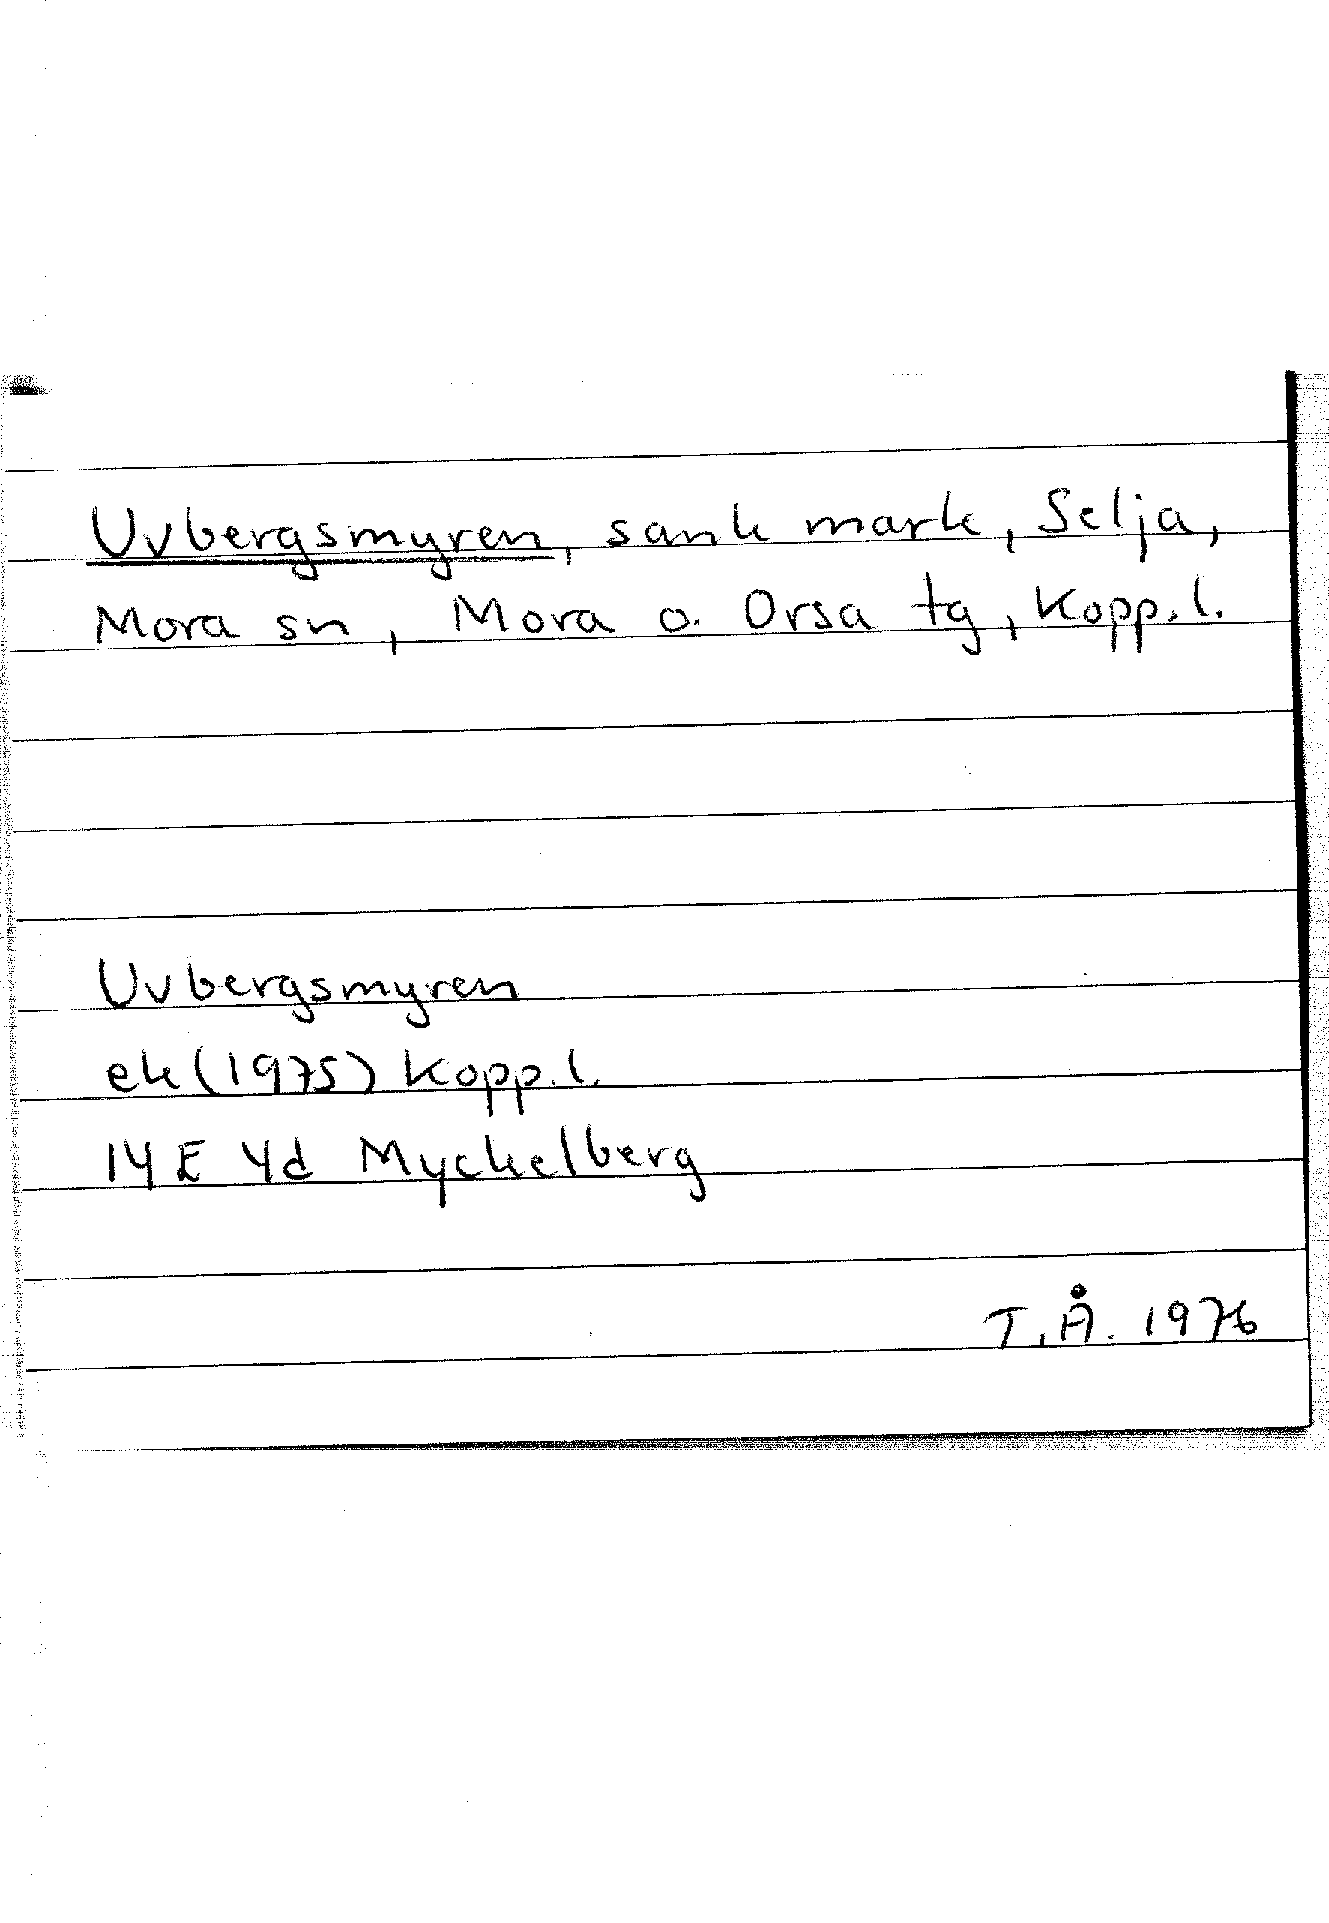 Uvbergsmyren, sank mark, Selja,
Mora sn, Mora o. Orsa tg, Kopp. l.
Uvbergsmyren
ek (1975) Kopp. l.
14 E 4d Myckelberg
T. Å. 1976